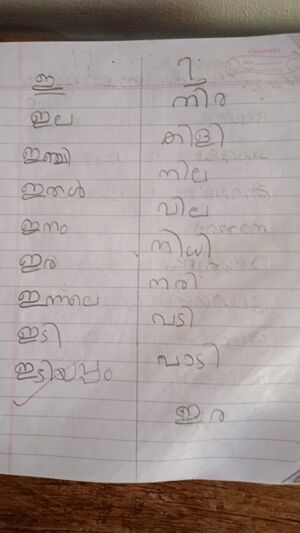 ഇ
ഇല
ഇഞ്ചി
ഇതൾ
ഇനം
ഇര
ഇന്നലെ
ഇടി
ഇടിയപ്പം
ി
നിര
കിളി
നില
വില
നിധി
നരി
വടി
പാടി
ഇര
classmate